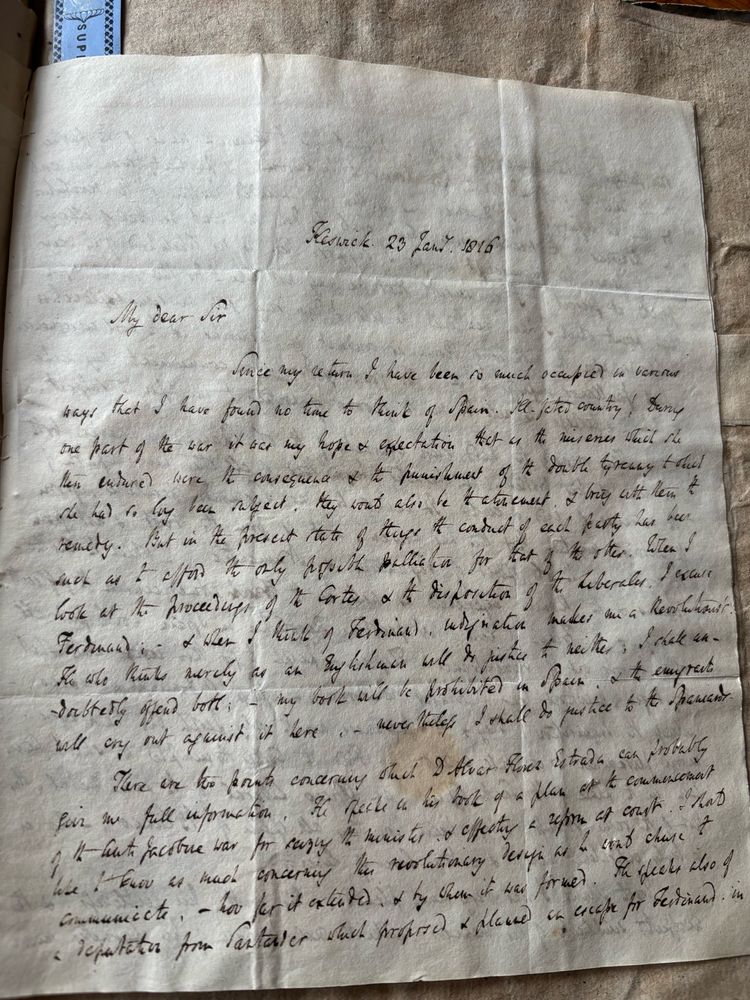 SUPE
Keswick. 23 Jany. 1816
My dear Sir
Since my return I have been so much occupied in various
ways that I have found no time to think of Spain. Ill-fated country! During
one part of the war it was my hope & expectation that as the miseries which she
then endured were the consequence & the punishment of the double tyranny to which
she had so long been subject, they would also be the atonement, & bring with them the
remedy. But in the present state of things the conduct of each party has been
such as to afford the only possible palliation for that of the other. When I
look at the proceedings of the Cortes & the disposition of the Liberales, I excuse
Ferdinand; - & when I think of Ferdinand, indignation makes me a Revolutionist.
He who thinks merely as an Englishman will do justice to neither. I shall un-
-doubtedly offend both; - my book will be prohibited in Spain, & the emigrants
will cry out against it here. - nevertheless I shall do justice to the Spaniards.
There are two points concerning which D Alvar Florez Estrada can probably
give me full information. He speaks in his book of a plan at the commencement
of the Anti Jacobine war for seizing the minister, & effecting a reform at court. I should
like to know as much concerning this revolutionary design as he would chuse to
communicate, - how far it extended, & by whom it was formed. He speaks also of
a deputation from Santander which proposed & planned an escape for Ferdinand, in